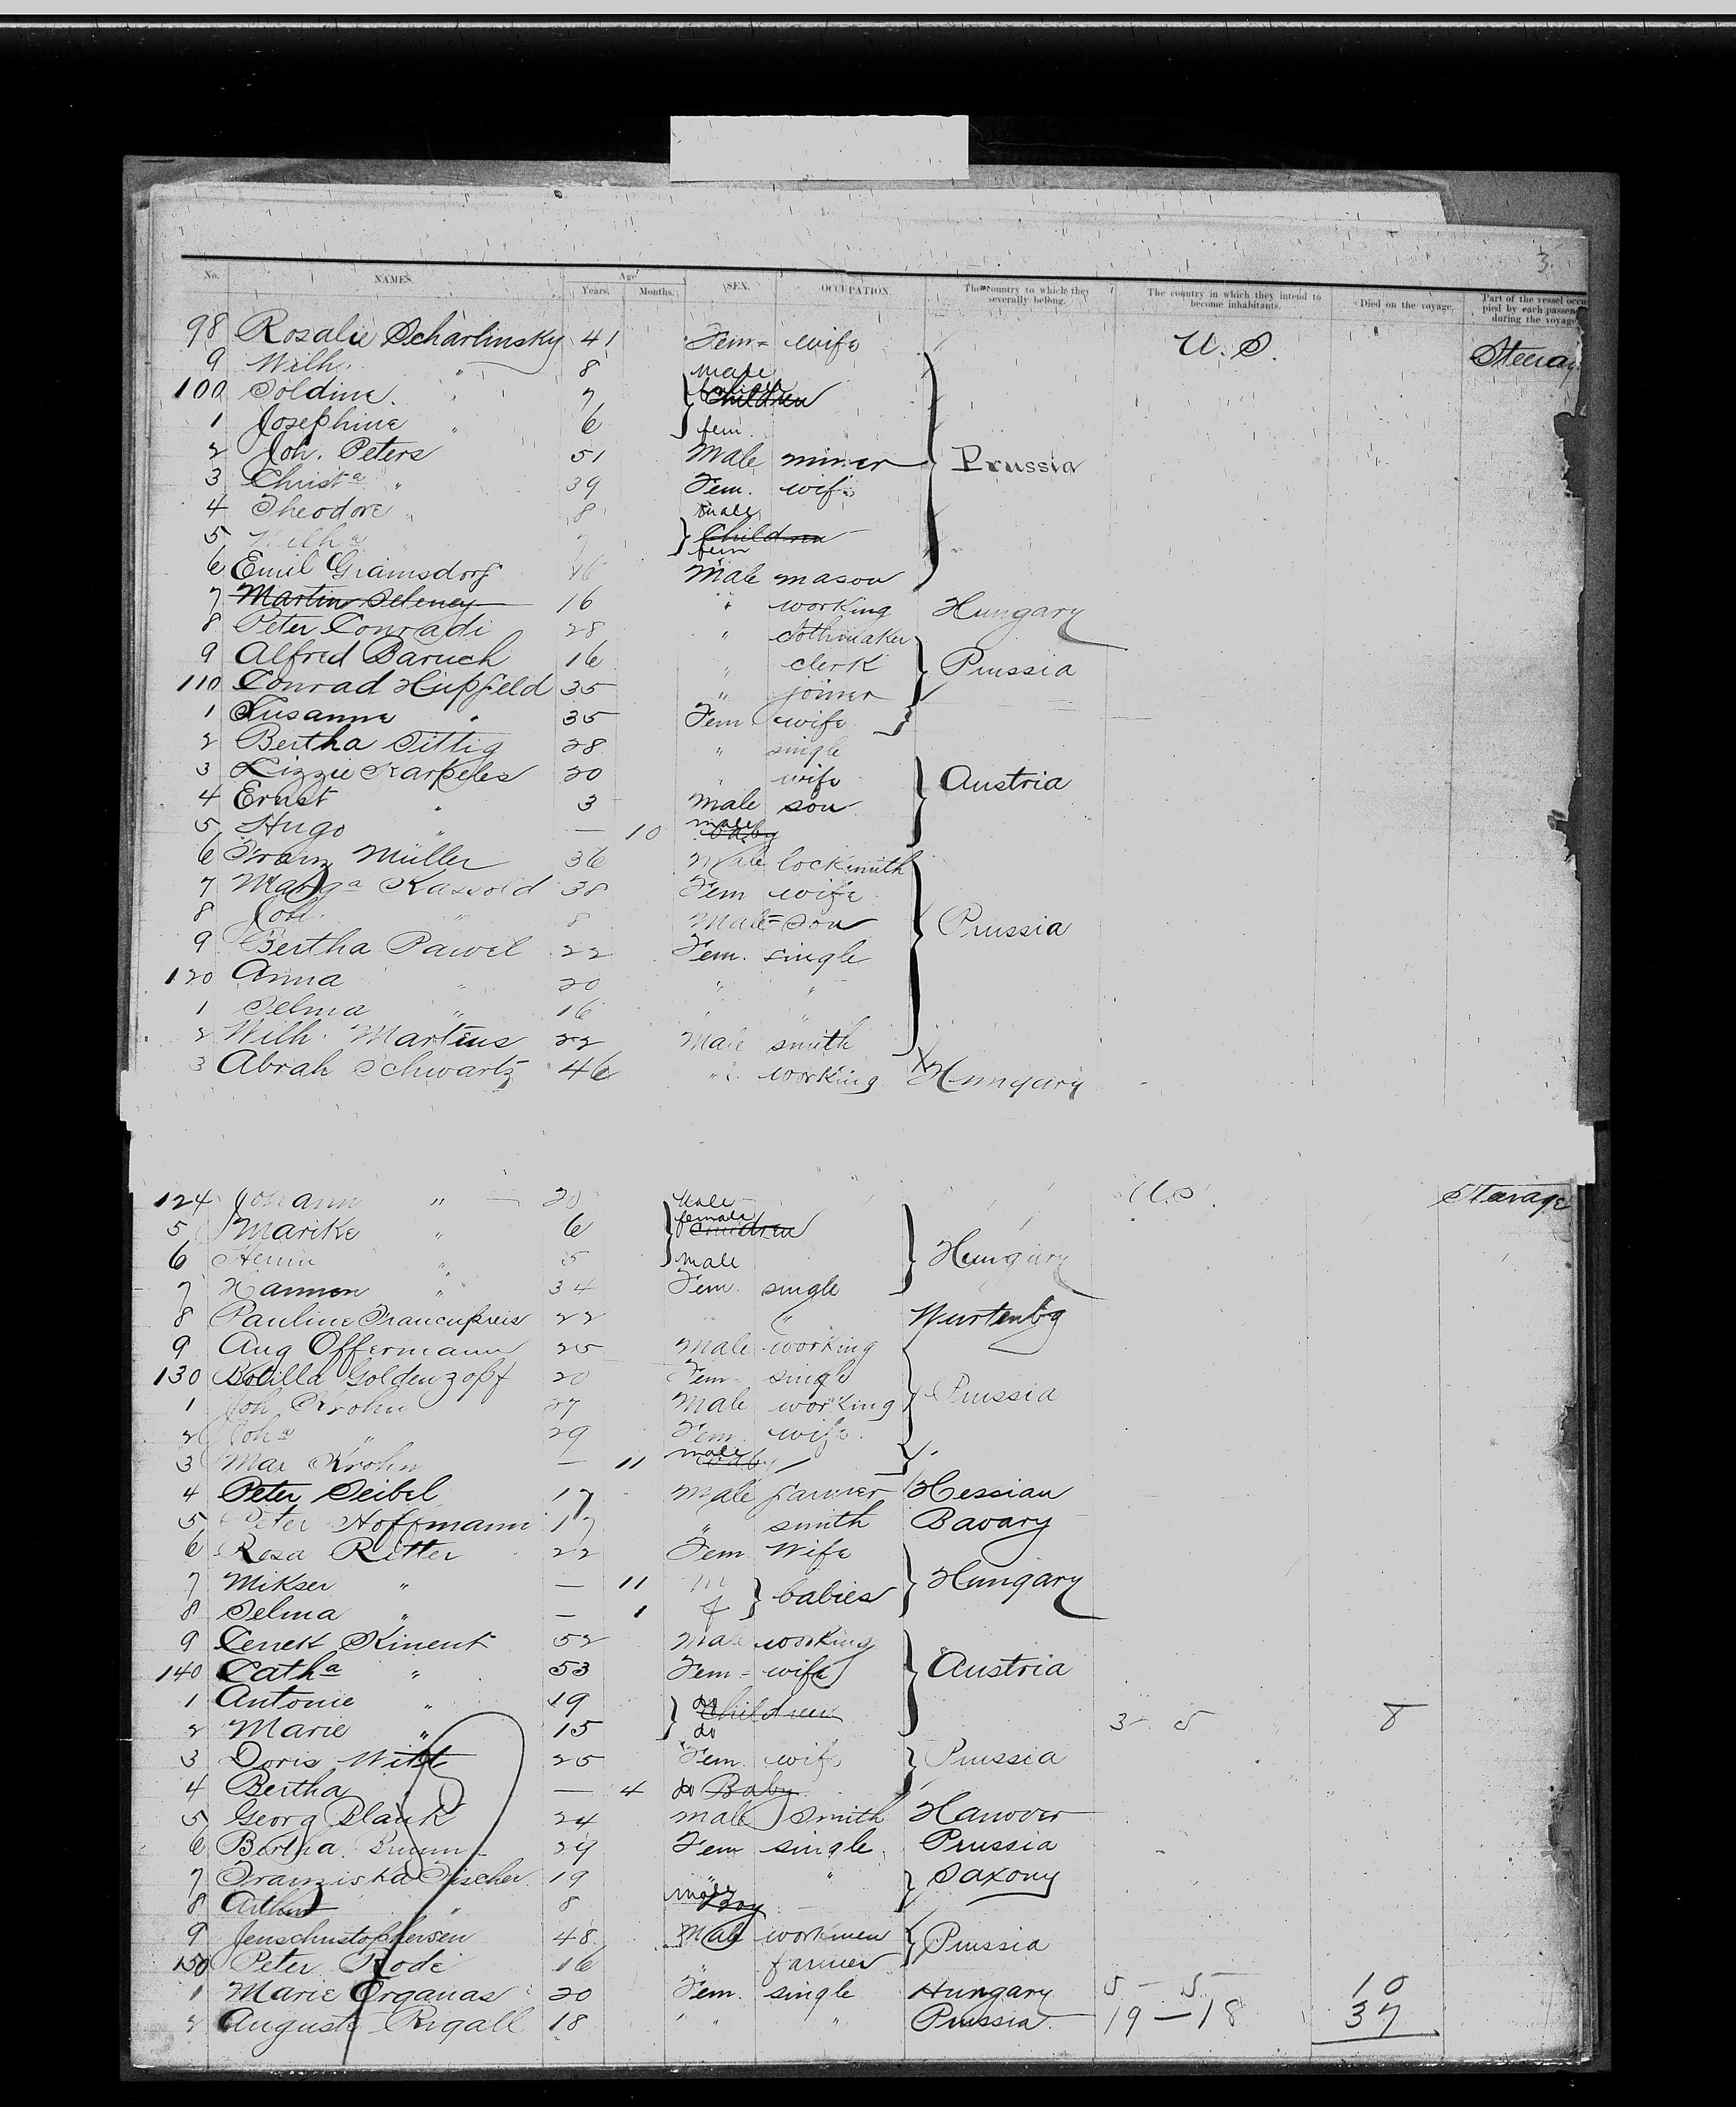 3.
No. NAMES. Age Years. Months. SEX. OCCUPATION. The country to which they severally belong. The country in which they intend to become inhabitants. Died on the voyage. Part of the vessel occupied by each passen during the voyage
98 Rosalie Scharlinsky 41 Fem= wife U. S. Steerag
9 Wilh. " 8 male
100 Soldine. " 7 Children
1 Josephine " 6 fem.
2 Joh. Peters 51 Male miner Prussia
3 Christa " 39 Fem. wife
4 Theodore " 8 male
5 Wilha 7 Children fem
6 Emil Gramsdorf 16 Male mason
7 Martin Seleney 16 " working Hungary
8 Peter Conradi 28 " clothmaker
9 Alfred Baruch 16 " clerk Prussia
110 Conrad Hupfeld 35 " joiner
1 Susanne " 35 Fem wife
2 Bertha Sittig 28 " single
3 Lizzie Karpeles 20 " wife Austria
4 Ernst " 3 male son
5 Hugo " — 10 male baby
6 Franz Müller 36 Male locksmith
7 Marga Kassold 38 Fem wife
8 Joh. " 8 Male= son Prussia
9 Bertha Pawel 22 Fem. single
120 Anna " 20 " "
1 Selma " 16 "
2 Wilh. Martens 22 Male smith
3 Abrah Schwartz 46 " working Hungary
124 Johann " 20 Male U.S. Steerage
5 Marike " 6 female Children
6 " 5 male Hungary
7 Hannen " 34 Fem. single
8 Pauline 22 " " Wurtenbg
9 Aug Offermann 25 Male working
130 Goldenzopf 20 Fem- single
1 Joh Krohn 27 Male working Prussia
2 Joha " 29 Fem. wife.
3 Max Krohn — 11 male baby
4 Peter Seibel 17 Male farmer Hessian
5 Peter Hoffmann 17 " smith Bavary
6 Rosa Ritter 22 Fem. Wife
7 Mikser " — 11 m babies Hungary
8 Selma " — 1 f
9 Cenek 52 Male working
140 Catha " 53 Fem= wife Austria
1 Antonie " 19 do Children
2 Marie " 15 do 3- 5 8
3 Doris Witt 25 Fem. wife Prussia
4 Bertha — 4 do Baby
5 Georg Blank 24 male Smith Hanover
6 Bertha 24 Fem single. Prussia
7 Franziska Fischer 19 " " Saxony
8 Arthur " 8 male Boy
9 Jenschristophersen 48 Male workmen Prussia
150 Peter Rode 16 " farmer
1 Marie Organas 20 Fem. single Hungary 5 - 5 10
2 Auguste Rigall 18 " " Prussia 19 - 18 37